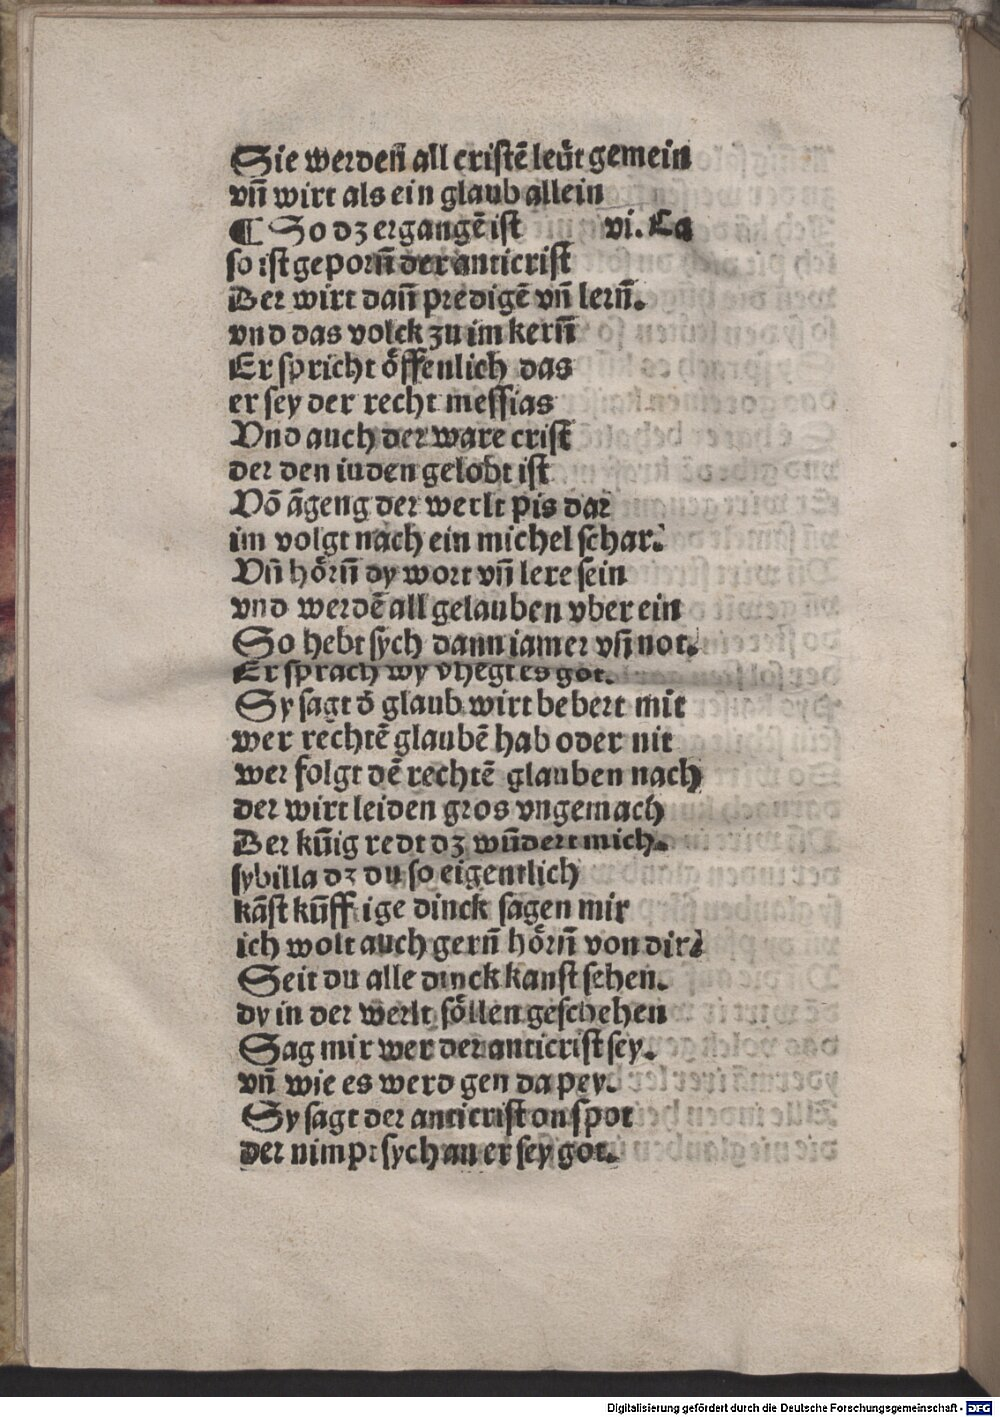 Sie werdeñ all cristē leüt gemein
vñ wirt als ein glaub allein
¶ So dʒ ergangē ist vi. Ca
so ist geporñ der anticrist
Der wirt dañ predigē vñ lerñ.
vnd das volck zu im kerñ
Er spricht öffenlich das
er sey der recht messias
Vnd auch der ware crist
der den iuden gelobt ist
Vō āgeng der werlt pis dar
im volgt nach ein michel schar.
Vñ hörñ dy wort vñ lere sein
vnd werdē all gelauben vber ein
So hebt sych dann iamer vñ not.
Er sprach wy vhegt es got.
Sy sagt d̄ glaub wirt bebert mit
wer rechtē glaubē hab oder nit
wer folgt dē rechtē glauben nach
der wirt leiden gros vngemach
Der kūnig redt dʒ wūdert mich.
sybilla dʒ du so eigentlich
kāst kūfftige dinck sagen mir
ich wolt auch gerñ hörñ von dir
Seit du alle dinck kanst sehen.
dy in der werlt söllen geschehen
Sag mir wer der anticrist sey.
vñ wie es werd gen da pey.
Sy sagt der anticrist on spot
der nimpt sych an er sey got.
Digitalisierung gefördert durch die Deutsche Forschungsgemeinschaft - DFG